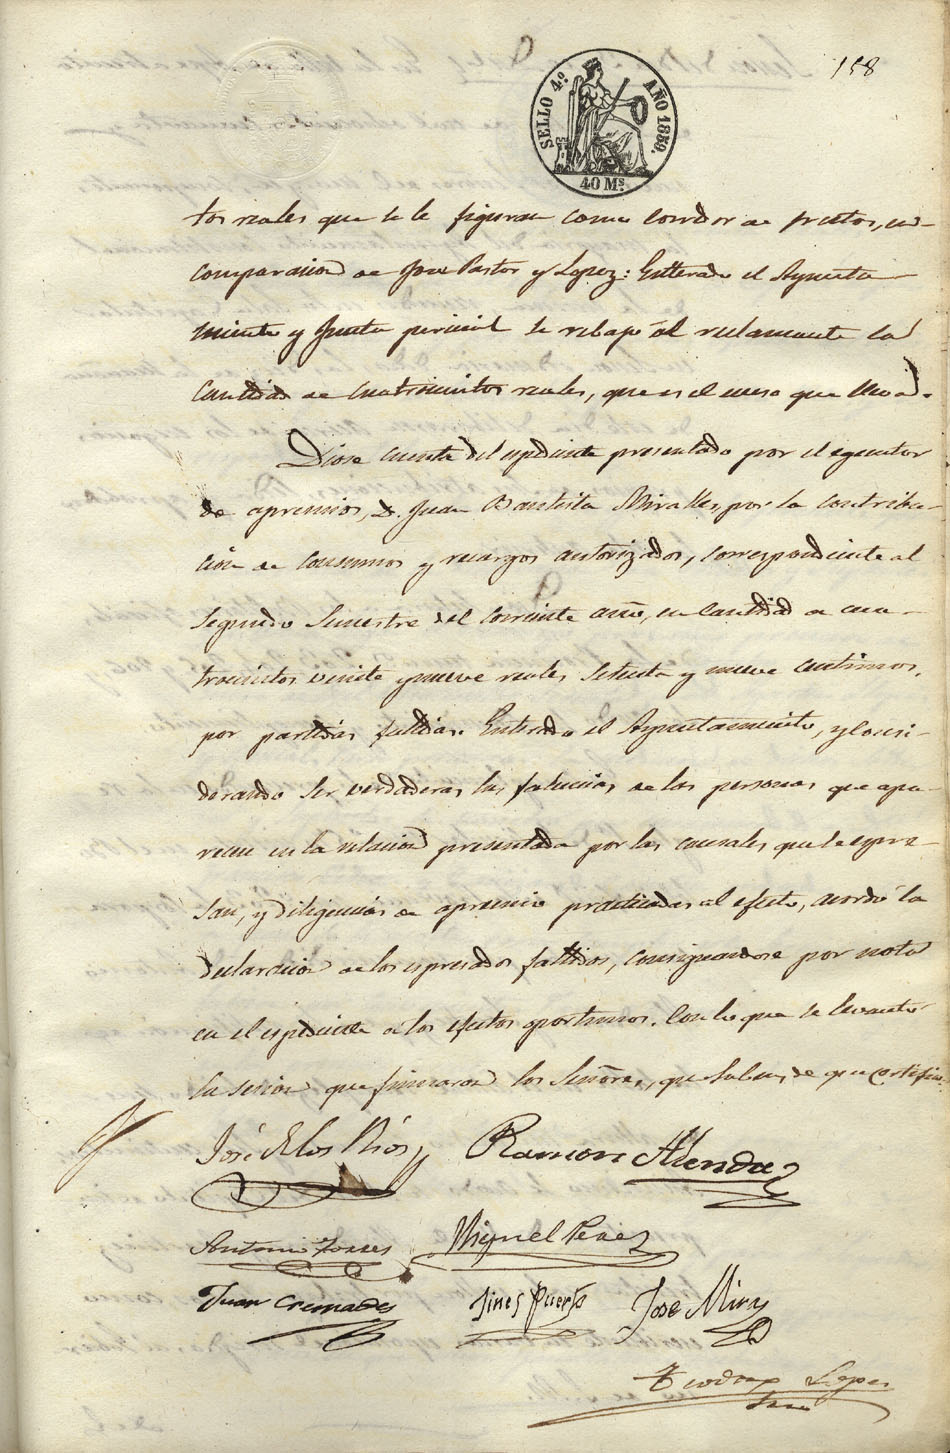 158
SELLO 4º AÑO 1859.
40 Ms.
tos reales que se le figuran como corredor de frutos, en
comparacion de Jose Pastor y Lopez: Enterado el Ayunta-
miento y Junta pericial se rebajó al reclamante la
cantidad de cuatrocientos reales, que es el exeso que lleva.
Diose cuenta del espediente presentado por el egecutor
de apremios, D. Juan Bautista Miralles, por la contribu-
cion de consumos y recargos autorizados, correspondiente al
segundo Semestre del corriente año, en cantidad de cua-
trocientos veinte y nueve reales setenta y nueve centimos,
por partidas fallidas. Enterado el Ayuntamiento, y consi-
derando ser verdaderas las falencias de las personas que apa-
recen en la relacion presentada por las causales que se espre-
san, y diligencias de apremio practicadas al efecto, acordó la
declaracion de los espresados fallidos, consignandose por nota
en el espediente a los efectos oportunos. Con lo que se levantó
la sesion que firmaron los Señores, que saben, de que certifico.
José de los Rios
Ramon Alenda
Antonio Torres
Miguel Perez
Juan Cremades
Jines Puerto
Jose Mira
Teodoro Lopez
Srio